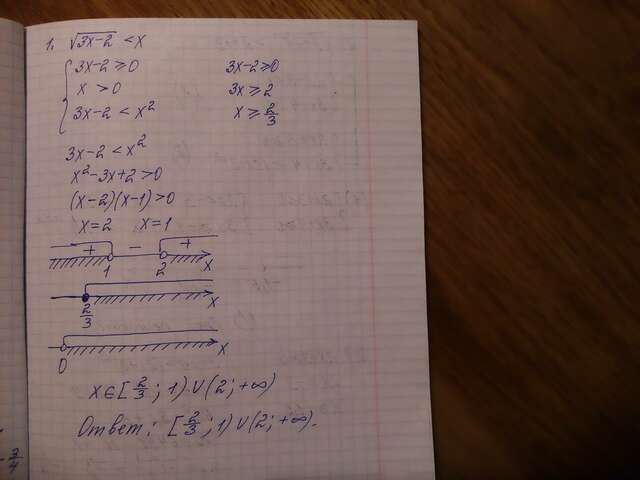 1. √3x-2 < x
3x-2 ≥ 0 3x-2 ≥ 0
x > 0 3x ≥ 2
3x-2 < x² x ≥ 2/3
3x-2 < x²
x²-3x+2 > 0
(x-2)(x-1) > 0
x=2 x=1
+ - +
1 2 x
2/3 x
0 x
x∈[2/3; 1)∪(2; +∞)
Ответ: [2/3; 1)∪(2; +∞).